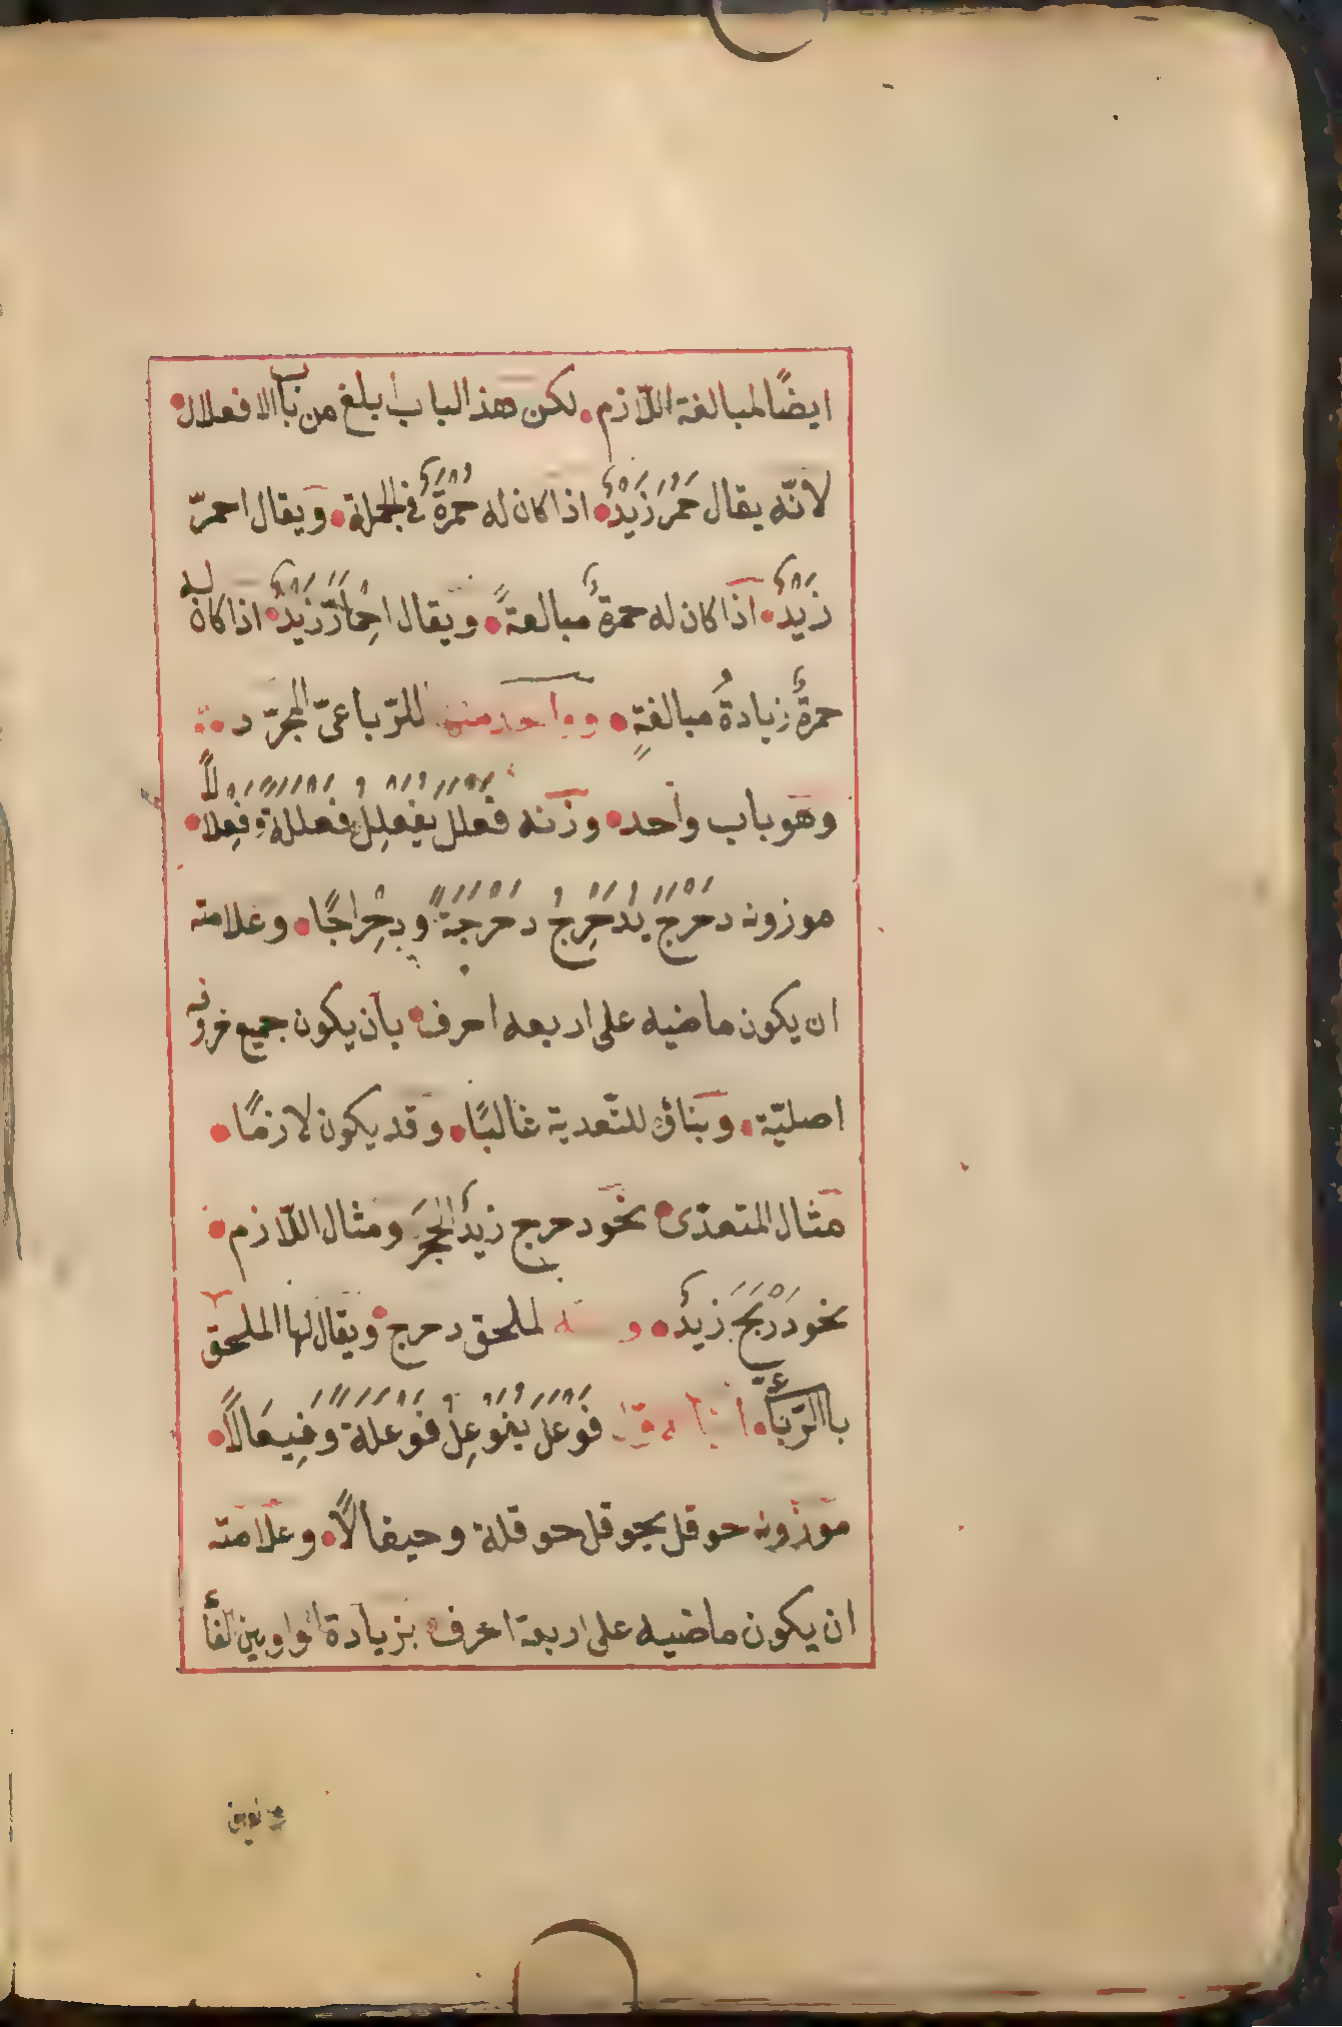 ايضًا لمبالغة اللّازم لكن هذ الباب ابلغ من باب الافعلال
لانّه يقال حَمُرَ زَيْدٌ اذا كان له حُمْرَةٌ في الجملة ويقال احمرّ
زَيْدٌ اذا كان له حمرةٌ مبالغةً ويقال احْمَارَّ زَيْدٌ اذا كان له
حمرةٌ زيادةُ مبالغةٍ وواحد منها للرّباعىّ المجرّد
وهو باب واحد وزنه فَعْلَلَ يُفَعْلِلُ فَعْلَلَةً وفِعْلَالًا
موزونه دَحْرَجَ يُدَحْرِجُ دَحْرَجَةً ودِحْرَاجًا وعلامته
ان يكون ماضيه على اربعه احرف بان يكون جميع حروفه
اصليّة وبناؤه للتّعدية غالبًا وقد يكون لازمًا
مثال المتعدّى نحو دحرج زيدٌ الحجرَ ومثال اللّازم
نحو دَرْبَحَ زيدٌ و لملحق دحرج ويقال لها الملحق
باالرّباعي فَوْعَلَ يُفَوْعِلُ فَوْعَلَةً وفِيعَالًا
موزونه حوقل يحوقل حوقلة وحيقالًا وعلامته
ان يكون ماضيه على اربعة احرف بزيادة الواو بين الفأ